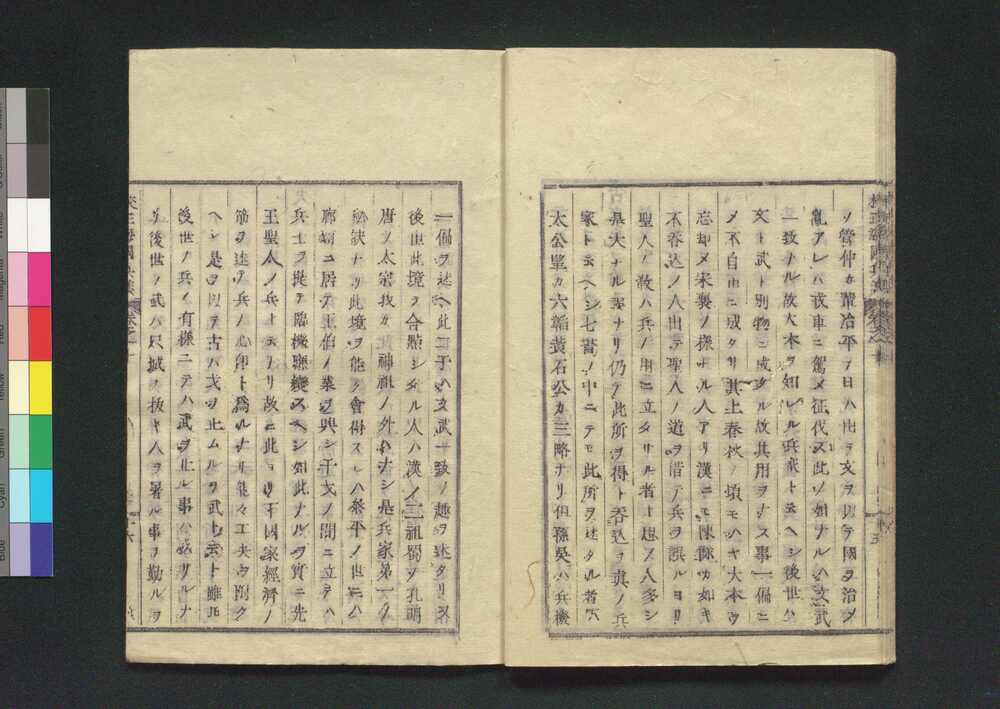 ノ管仲カ輩治平ノ日ハ出ヲ文ヲ以テ國ヲ治メ
亂アレバ戎車ニ駕メ征伐ス此ノ如ナルハ文武
一致ナル故大本ヲ知レル兵家ト云ヘシ後世ハ
文ト武ト別物ニ成タル故其用ヲナス事一偏ニ
メ不自由ニ成タリ其上春秋ノ頃モハヤ大本ヲ
忘却メ宋襄ノ樣ナル人アリ漢ニモ陳餘カ如キ
不呑込ノ人出テ聖人ノ道ヲ借テ兵ヲ誤ルヨリ
聖人ノ教ハ兵ノ用ニ立タリル者ト思フ人多シ
是大ナル事ナリ仍テ此所ヲ得ト呑込ヲ真ノ兵
家ト云ヘシ七書ノ中ニテモ此所ヲ述タル者ハ
太公望カ六韜黄石公カ三略ナリ但孫吳ハ兵機
一偏ヲ述ヘ此二子ハ文武一致ノ趣ヲ述タリ又
後世此境ヲ合點シタル人ハ漢ノ三祖蜀ノ孔明
唐ノ太宗我カ神祖ノ外ハナシ是兵家第一ノ
祕訣ナリ此境ヲ能ク會得スレハ泰平ノ世ニハ
廊廟ニ居テ王伯ノ業ヲ興シ干戈ノ間ニ立テハ
兵士ヲ提テ臨機應變スヘシ如此ナルヲ實ニ先
王聖人ノ兵ト云ヘリ故ニ此ヲ以テ國家經濟ノ
筋ヲ述テ兵ノ心印ト爲ルナリ能々工夫ヲ附ク
ヘシ是ヲ以テ古ハ戈ヲ止ムルヲ武ト云ト雖ドモ
後世ノ兵ノ有樣ニテハ武ヲ止ル事
リ後世ノ武ハ尺城ヲ拔キ人ヲ畧ル事ヲ勤ルヲ